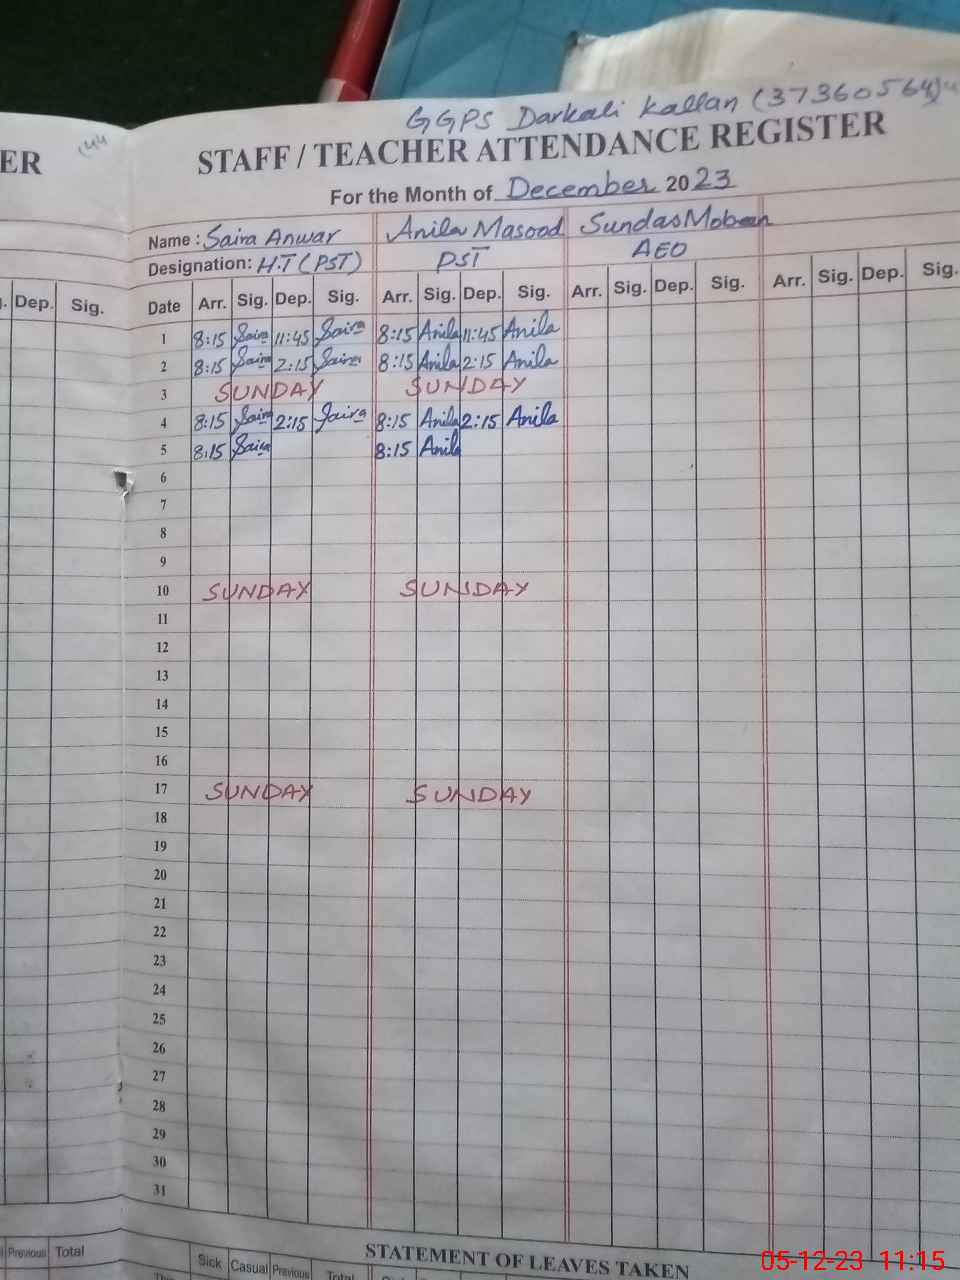 GGPS Darkali Kallan (37360564)
ER
STAFF / TEACHER ATTENDANCE REGISTER
For the Month of December 2023
Name : Saira Anwar Anila Masood Sundas Mobeen
Designation: H.T (PST) PST AEO
Dep. Sig. Date Arr. Sig. Dep. Sig. Arr. Sig. Dep. Sig. Arr. Sig. Dep. Sig. Arr. Sig. Dep. Sig.
1 8:15 Saira 11:45 Saira 8:15 Anila 11:45 Anila
2 8:15 Saira 2:15 Saira 8:15 Anila 2:15 Anila
3 SUNDAY SUNDAY
4 8:15 Saira 2:15 Saira 8:15 Anila 2:15 Anila
5 8:15 Saira 8:15 Anila
6
7
8
9
10 SUNDAY SUNDAY
11
12
13
14
15
16
17 SUNDAY SUNDAY
18
19
20
21
22
23
24
25
26
27
28
29
30
31
STATEMENT OF LEAVES TAKEN
Previous Total Sick Casual Previous Total
05-12-23 11:15